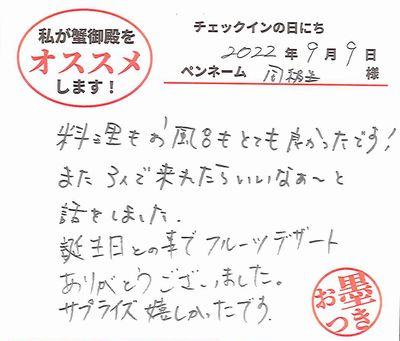 私が蟹御殿を
オススメ
します!
チェックインの日にち
2022年9月9日
ペンネーム 様
料理もお風呂もとても良かったです!
また3人で来れたらいいなぁ〜と
話をしました.
誕生日との事でフルーツデザート
ありがとうございました。
サプライズ嬉しかったです.
お墨つき